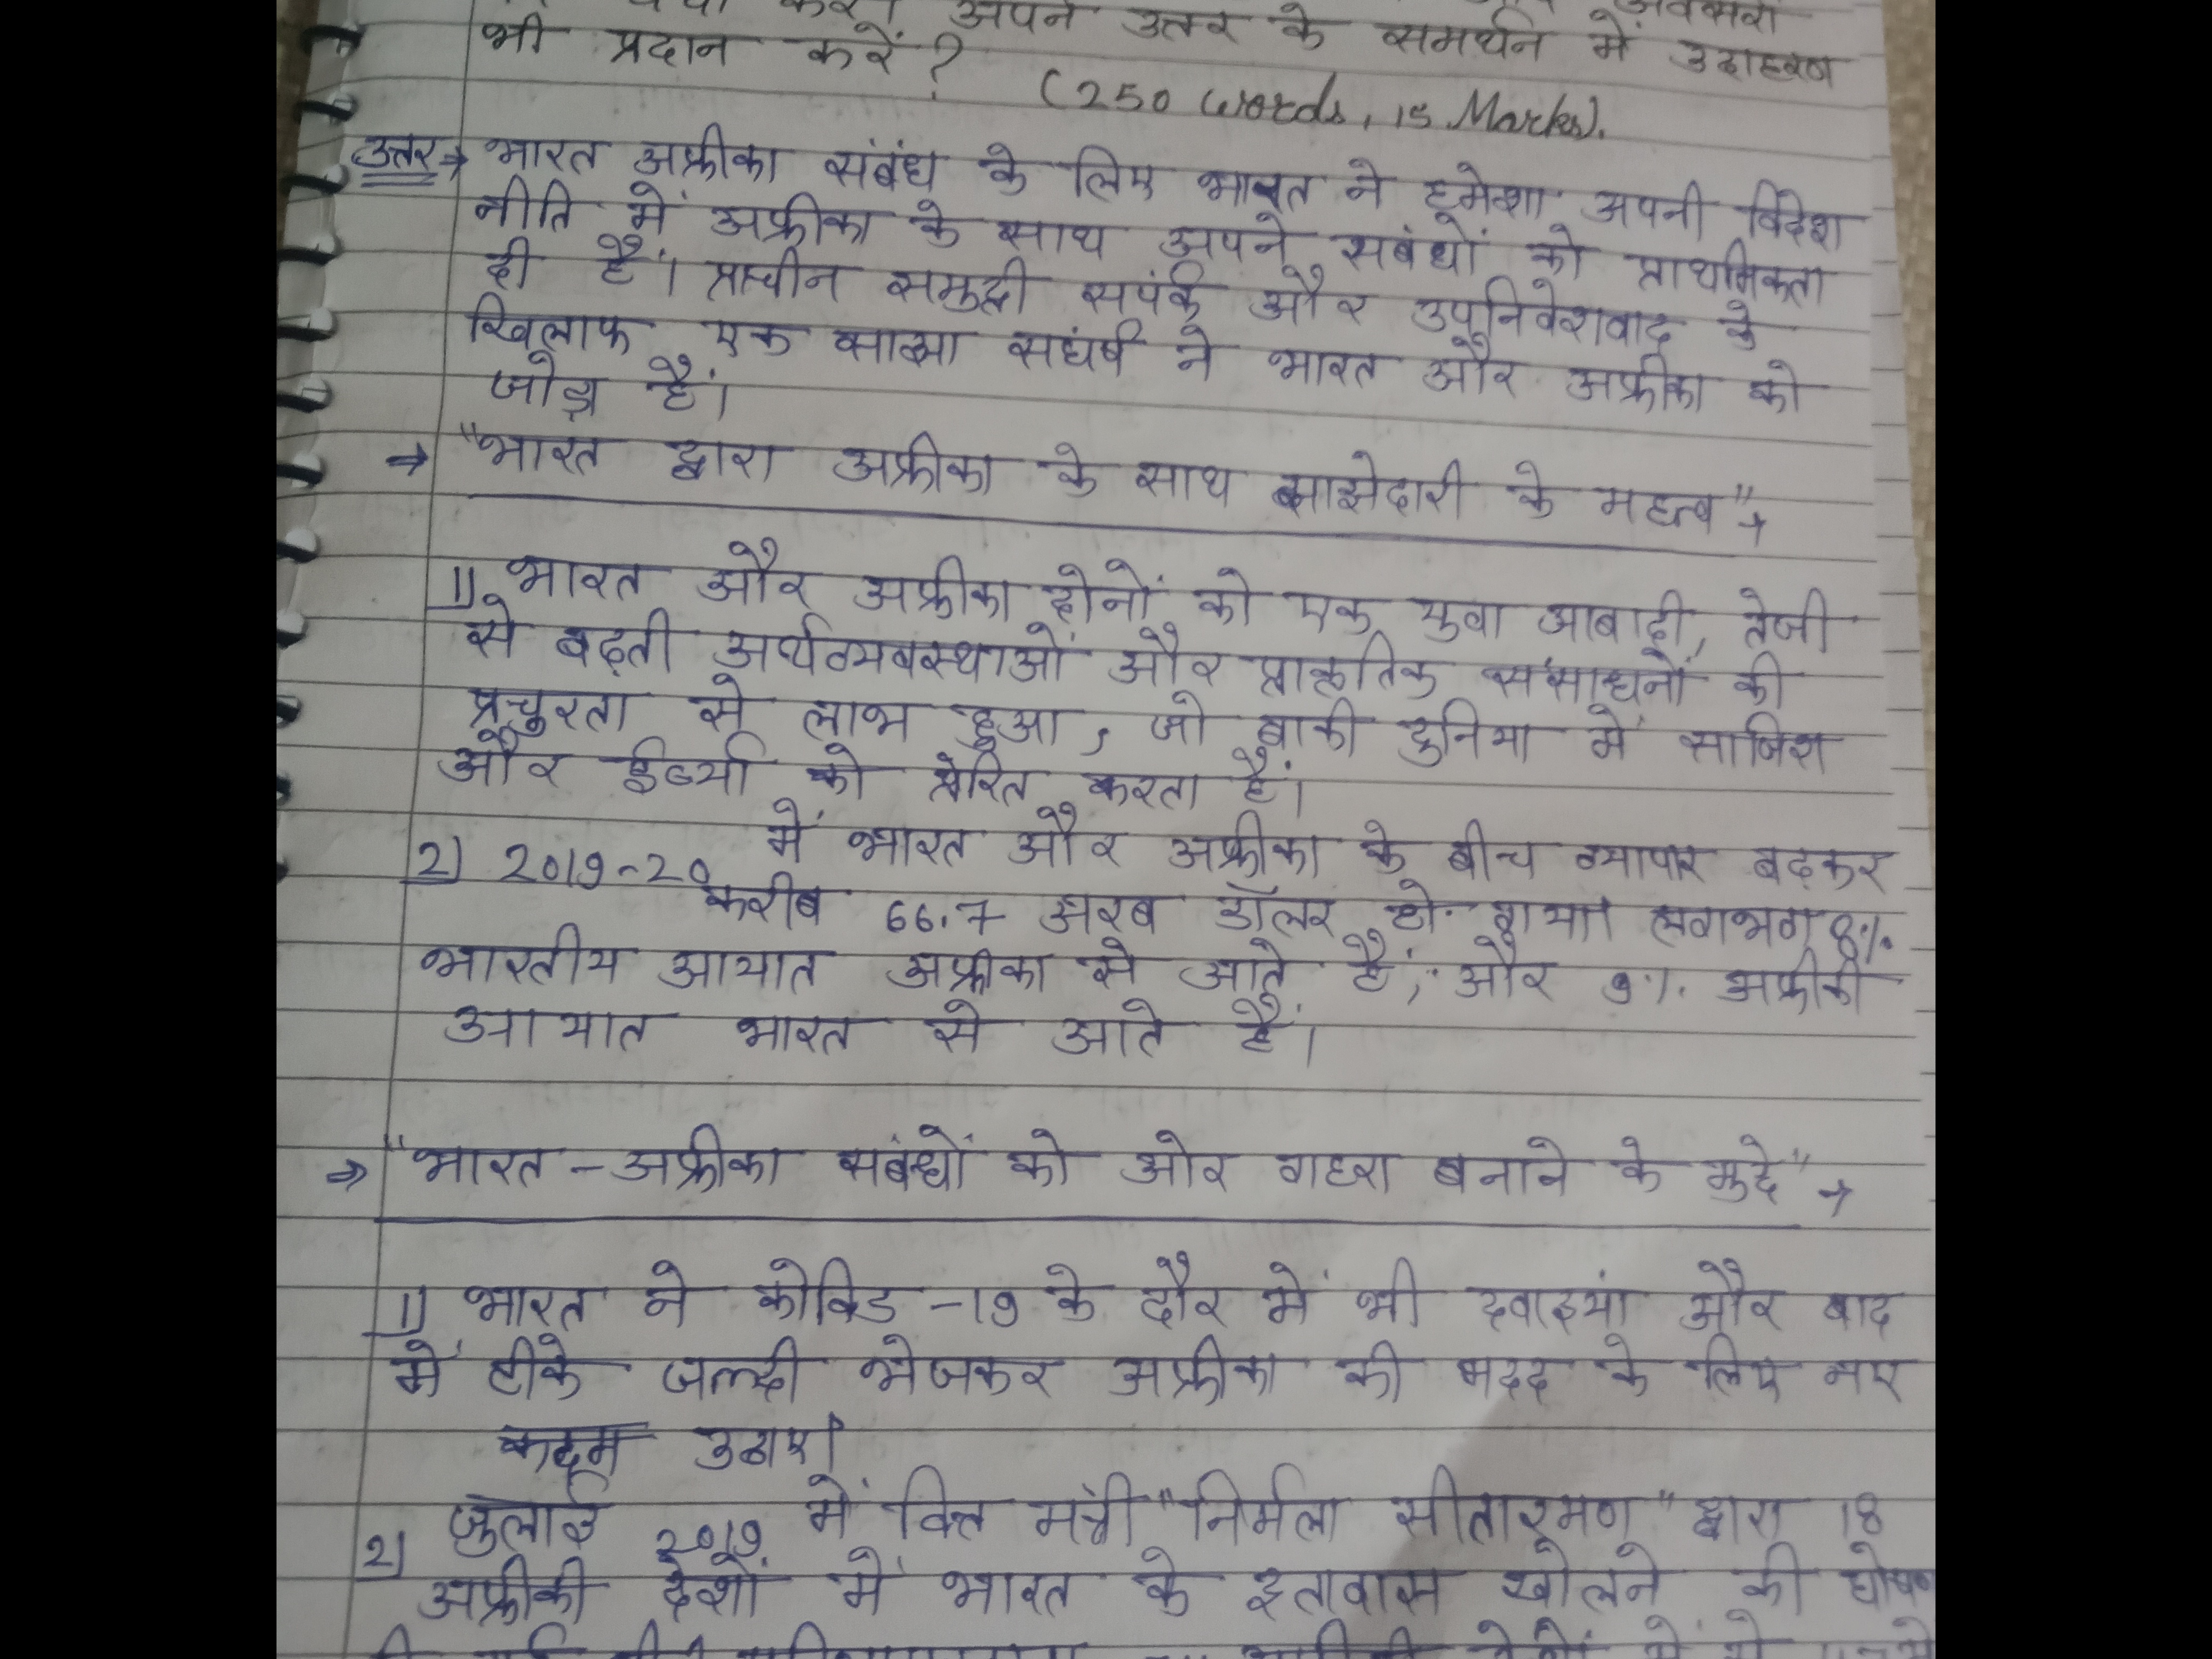 अपने उत्तर के समर्थन में उदाहरण
भी प्रदान करें?
(250 words, 15 Marks).
उत्तर→ भारत अफ्रीका संबंध के लिए भारत ने हमेशा अपनी विदेश
नीति में अफ्रीका के साथ अपने सबंधों को प्राथमिकता
दी है। प्राचीन समुद्री सपंर्क और उपनिवेशवाद के
खिलाफ एक साझा सघंर्ष ने भारत और अफ्रीका को
जोड़ा हैं।
→ "भारत द्वारा अफ्रीका के साथ साझेदारी के महत्व" →
1) भारत और अफ्रीका दोनों को एक युवा आबादी, तेजी
से बढ़ती अर्थव्यवस्थाओं और प्राकृतिक संसाधनों की
प्रचुरता से लाभ हुआ, जो बाकी दुनिया में साजिश
और ईर्ष्या को प्रेरित करता है।
2) 2019-20 में भारत और अफ्रीका के बीच व्यापार बढ़कर
करीब 66.7 अरब डॉलर हो गया। लगभग 8%
भारतीय आयात अफ्रीका से आते हैं, और 9% अफ्रीकी
आयात भारत से आते हैं।
→ "भारत - अफ्रीका सबंधों को ओर गहरा बनाने के मुद्दे" →
1) भारत ने कोविड -19 के दौर में भी दवाइयां और बाद
में टीके जल्दी भेजकर अफ्रीका की मदद के लिए नए
कदम उठाए।
2) जुलाई 2019 में वित्त मंत्री "निर्मला सीतारमण" द्वारा 18
अफ्रीकी देशों में भारत के दूतावास खोलने की घोषणा